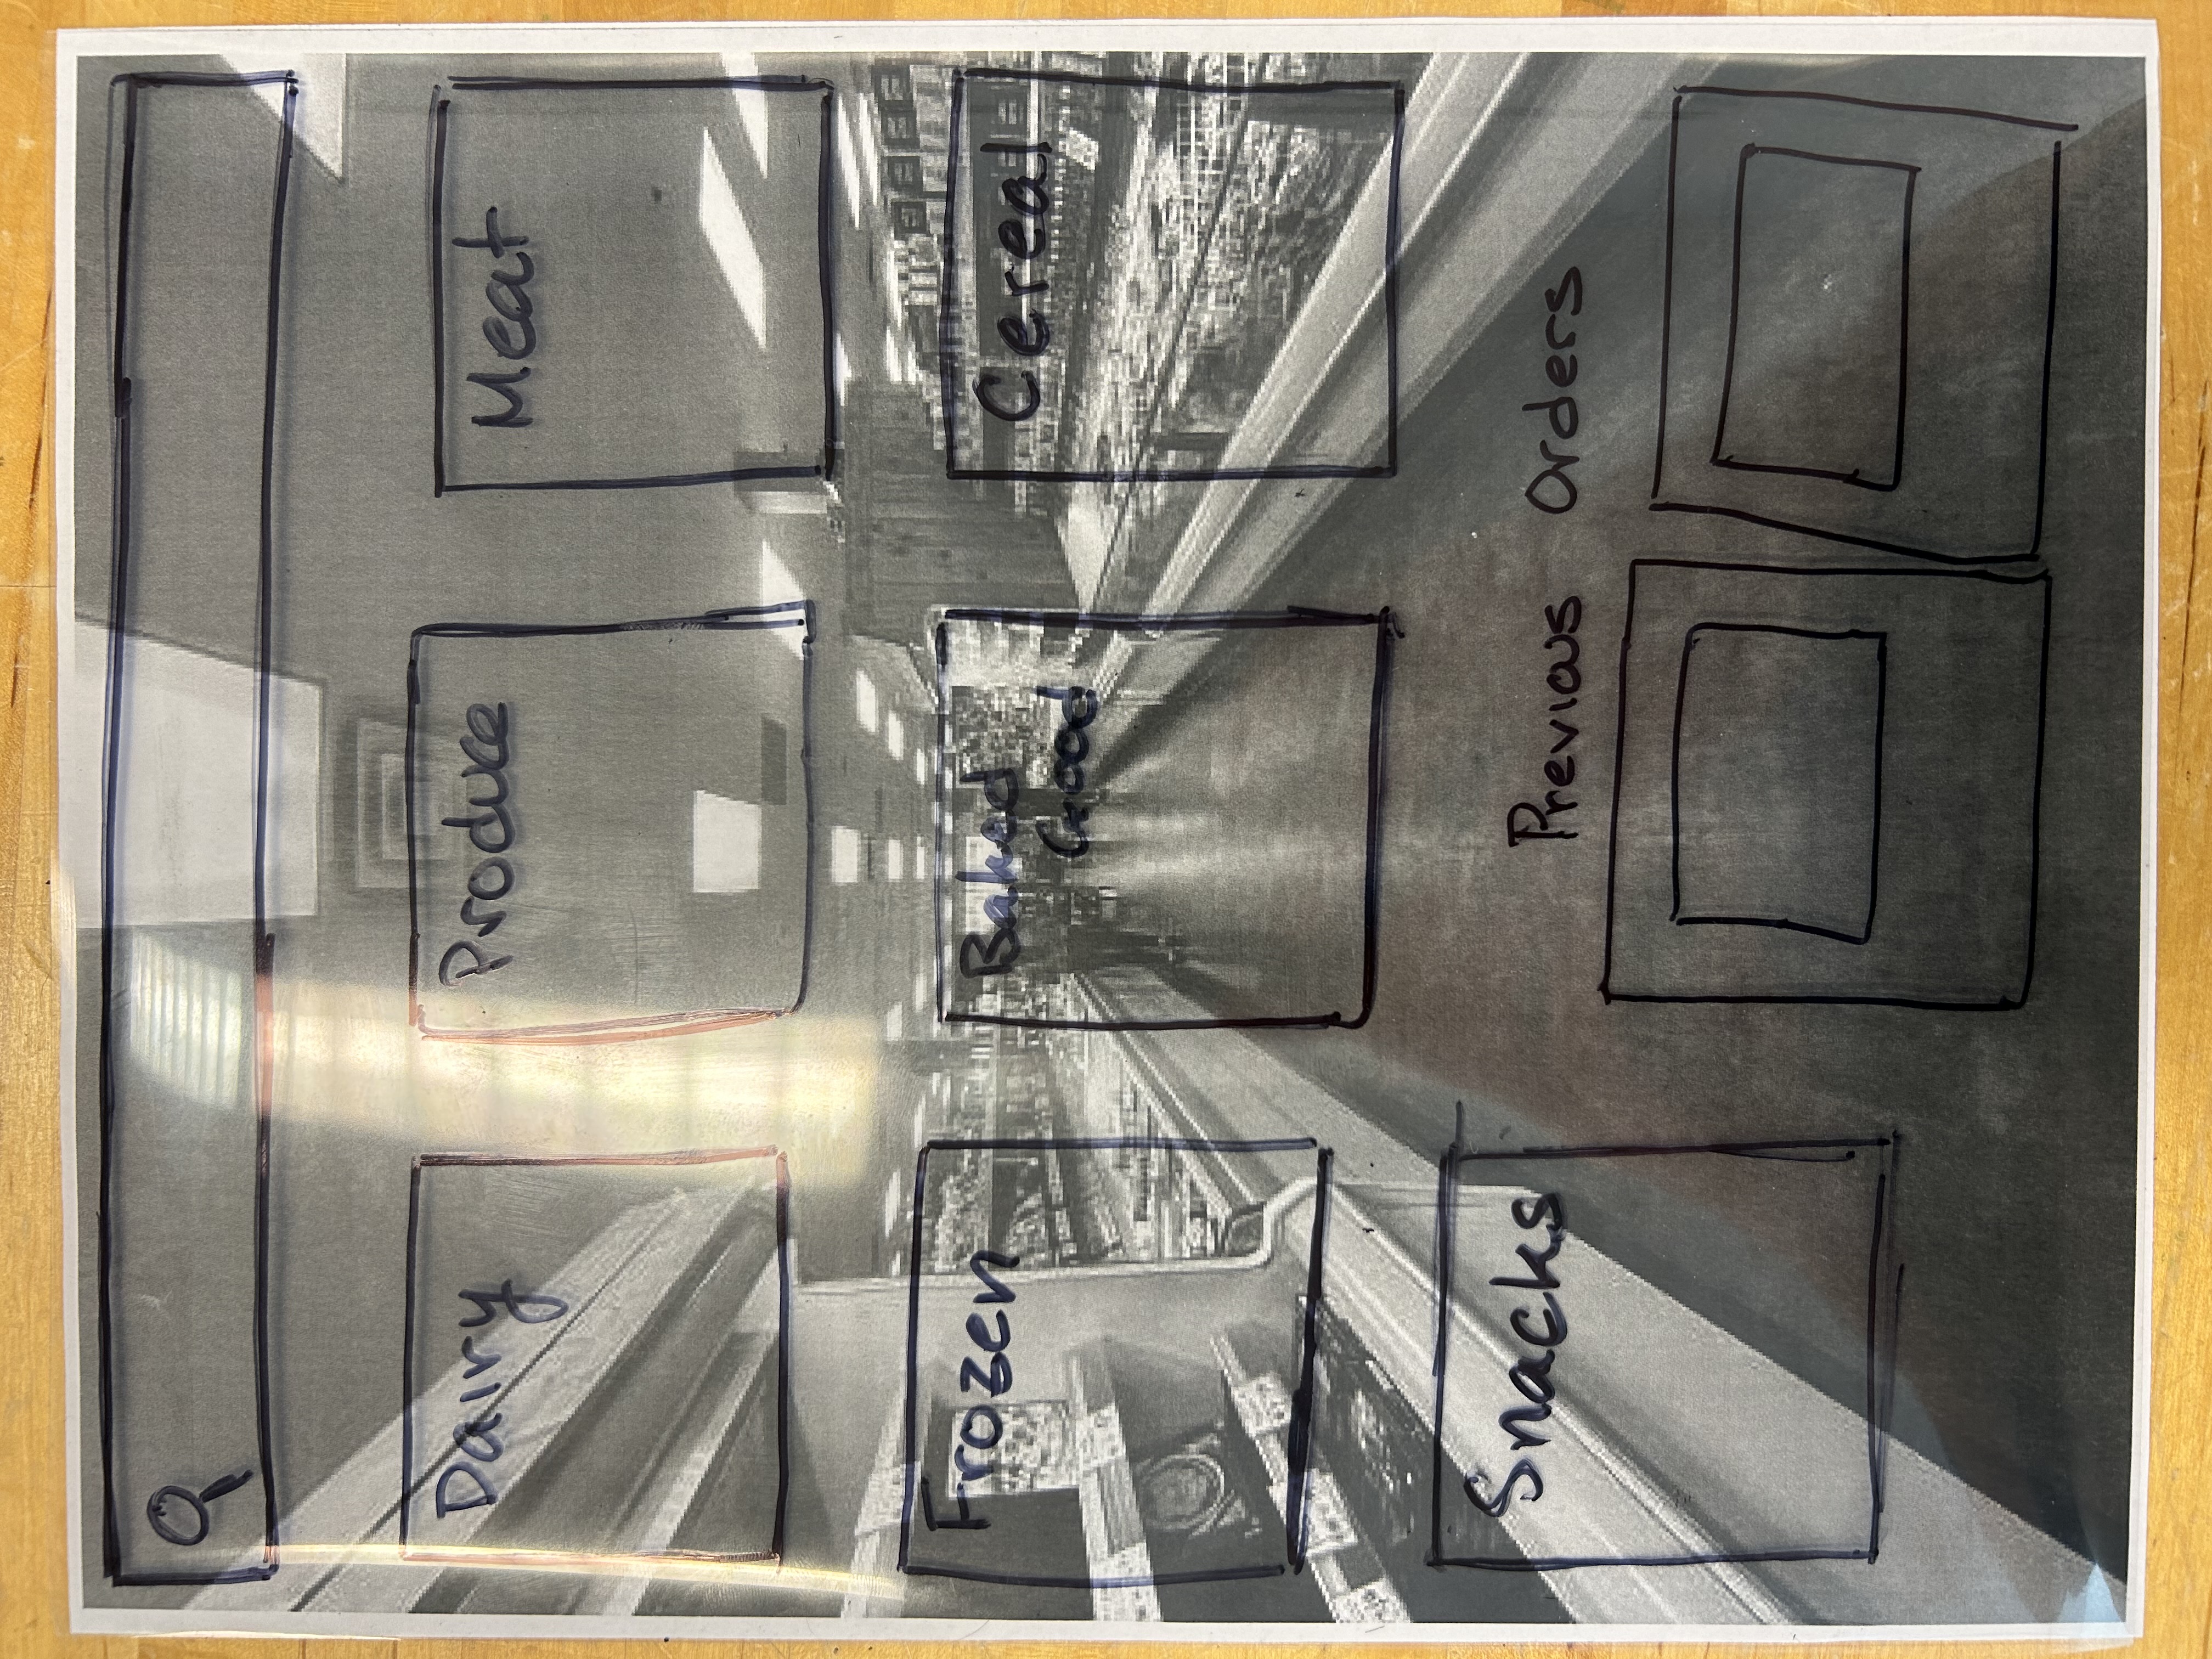 Dairy
Produce
Meat
Frozen
Baked
Good
Cereal
Snacks
Previous Orders